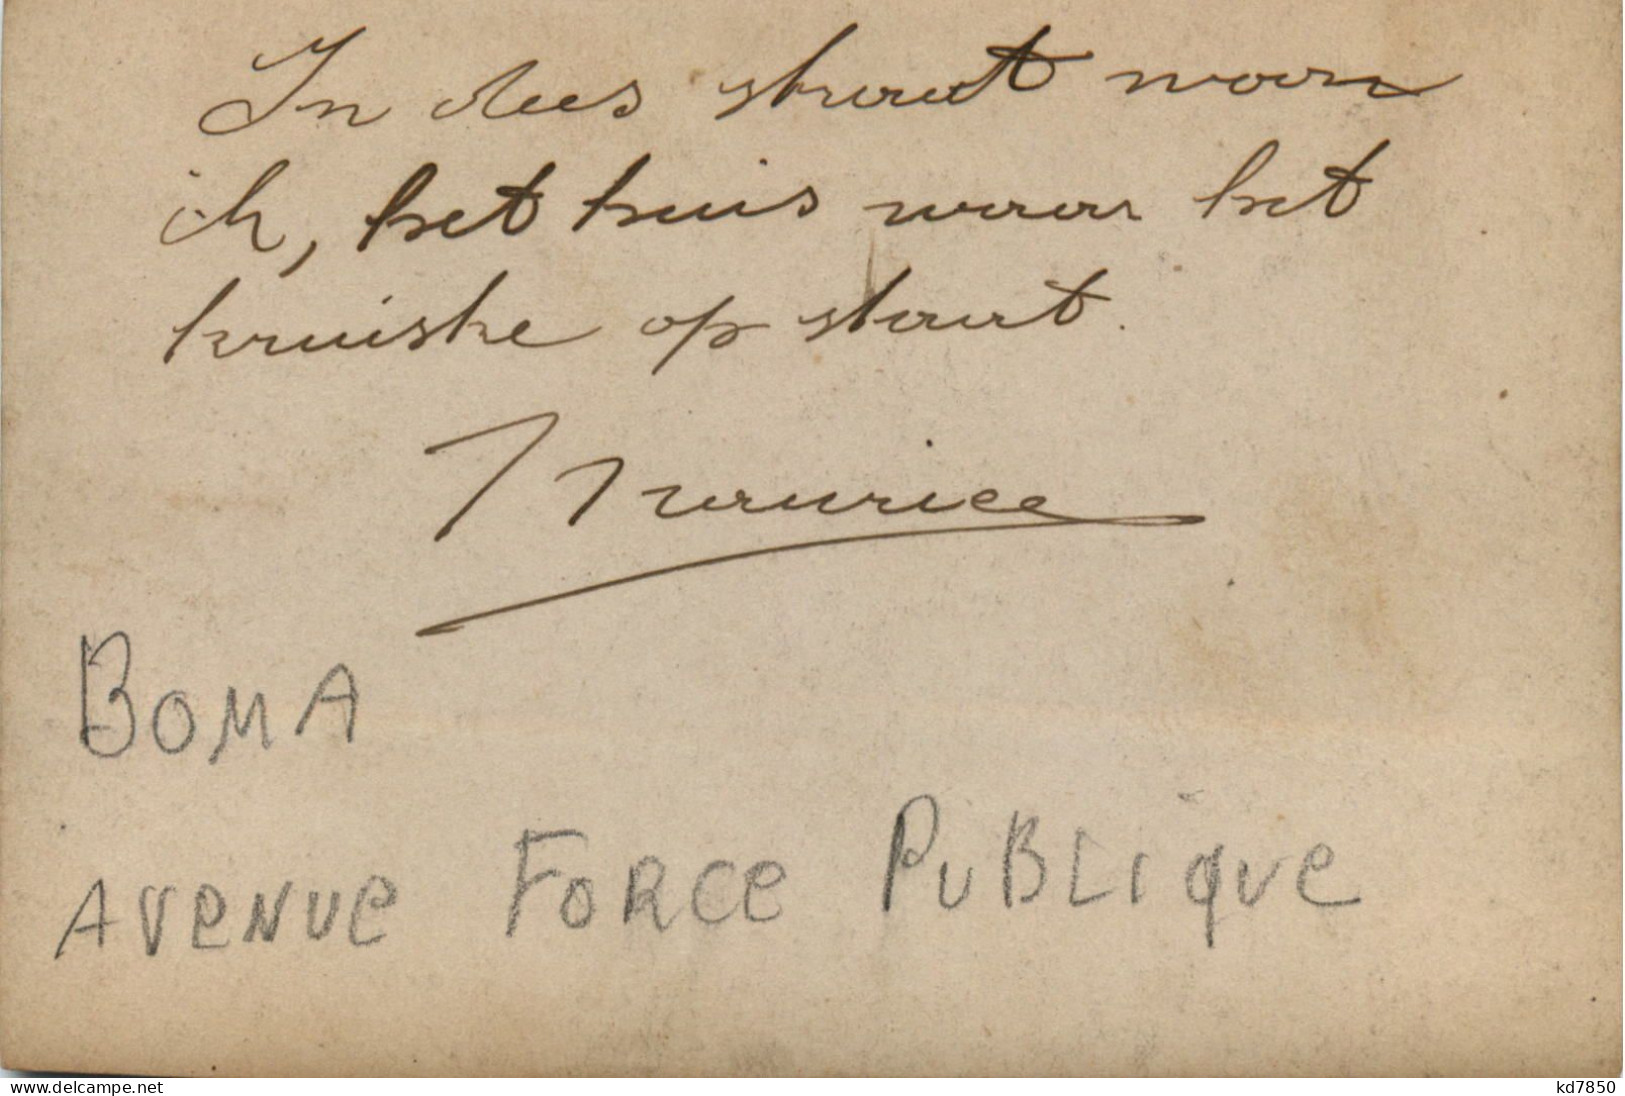 In dees straat woon
ik, het huis waar het
kruiske op staat.
Maurice
BOMA
AVENUE FORCE PUBLIQUE
delcampe.net
kd7850